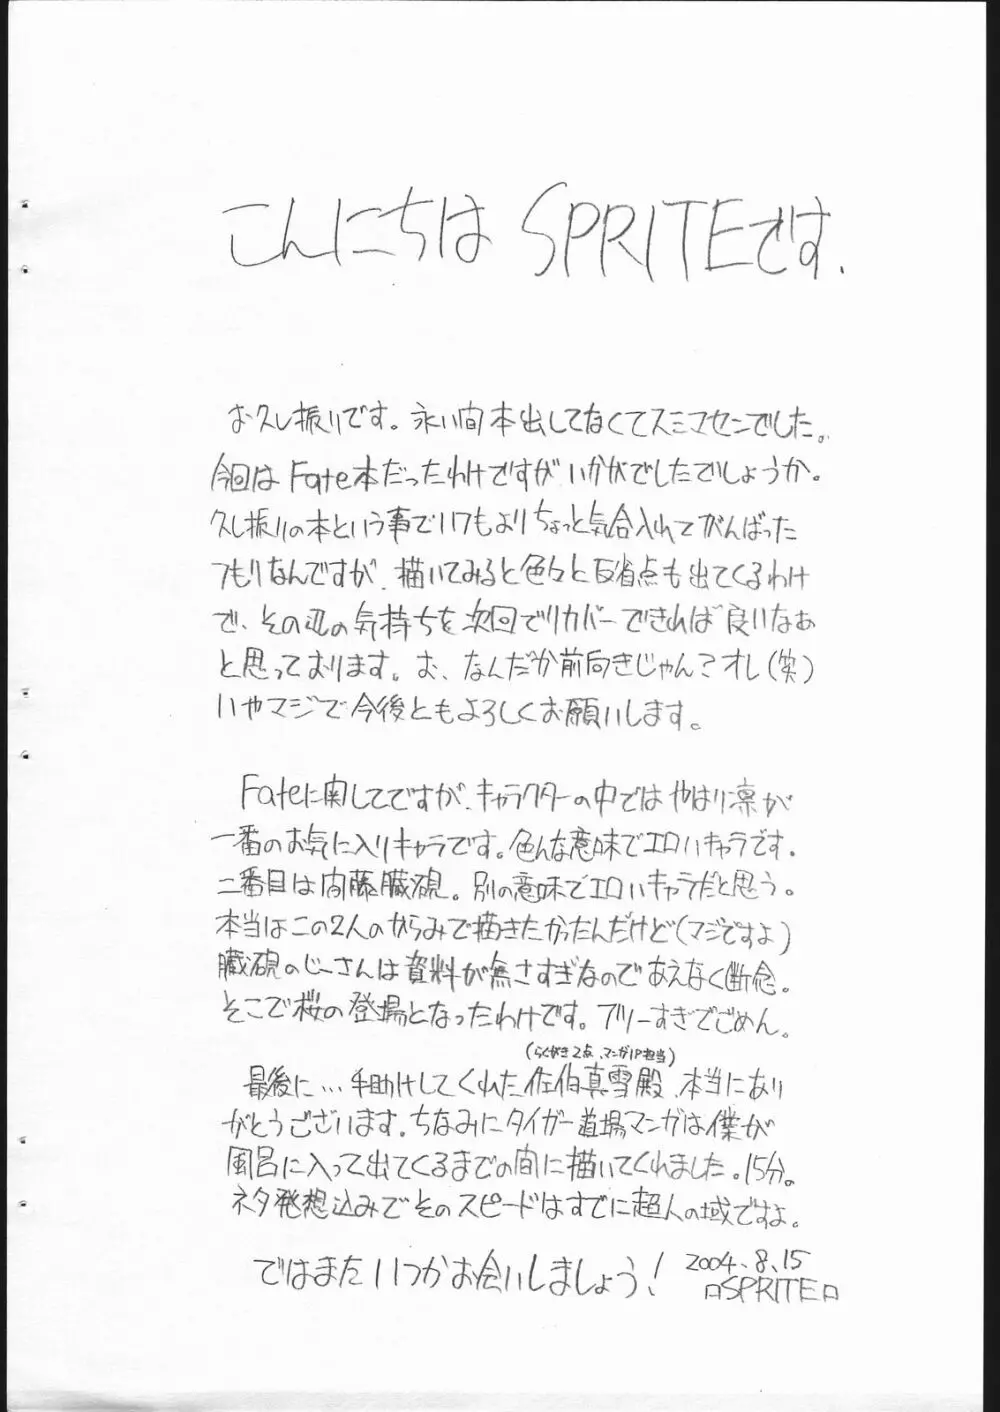 こんにちは SPRITEです.
お久し振りです。永い間本出してなくてスミマセンでした。
今回はFate本だったわけですが、いかがでしたでしょうか。
久し振りの本という事でいつもよりちょっと気合入れてがんばった
つもりなんですが、描いてみると色々と反省点も出てくるわけ
で、その辺の気持ちを次回でリカバーできれば良いなぁ
と思っております。お、なんだか前向きじゃん？オレ（笑）
いやマジで今後ともよろしくお願いします。
Fateに関してですが、キャラクターの中ではやはり凛が
一番のお気に入りキャラです。色んな意味でエロいキャラです.
二番目は間藤臓硯。別の意味でエロいキャラだと思う。
本当はこの2人のからみで描きたかったんだけど（マジですよ）
臓硯のじーさんは資料が無さすぎなのであえなく断念。
そこで桜の登場となったわけです。フリーすぎでごめん。
（らくがき2点、マンガ1P担当）
最後に…手助けしてくれた佐伯真雪殿、本当にあり
がとうございます。ちなみにタイガー道場マンガは僕が
風呂に入って出てくるまでの間に描いてくれました。15分。
ネタ発想込みでそのスピードはすでに超人の域ですよ。
ではまたいつかお会いしましょう！ 2004.8.15
ロSPRITEロ